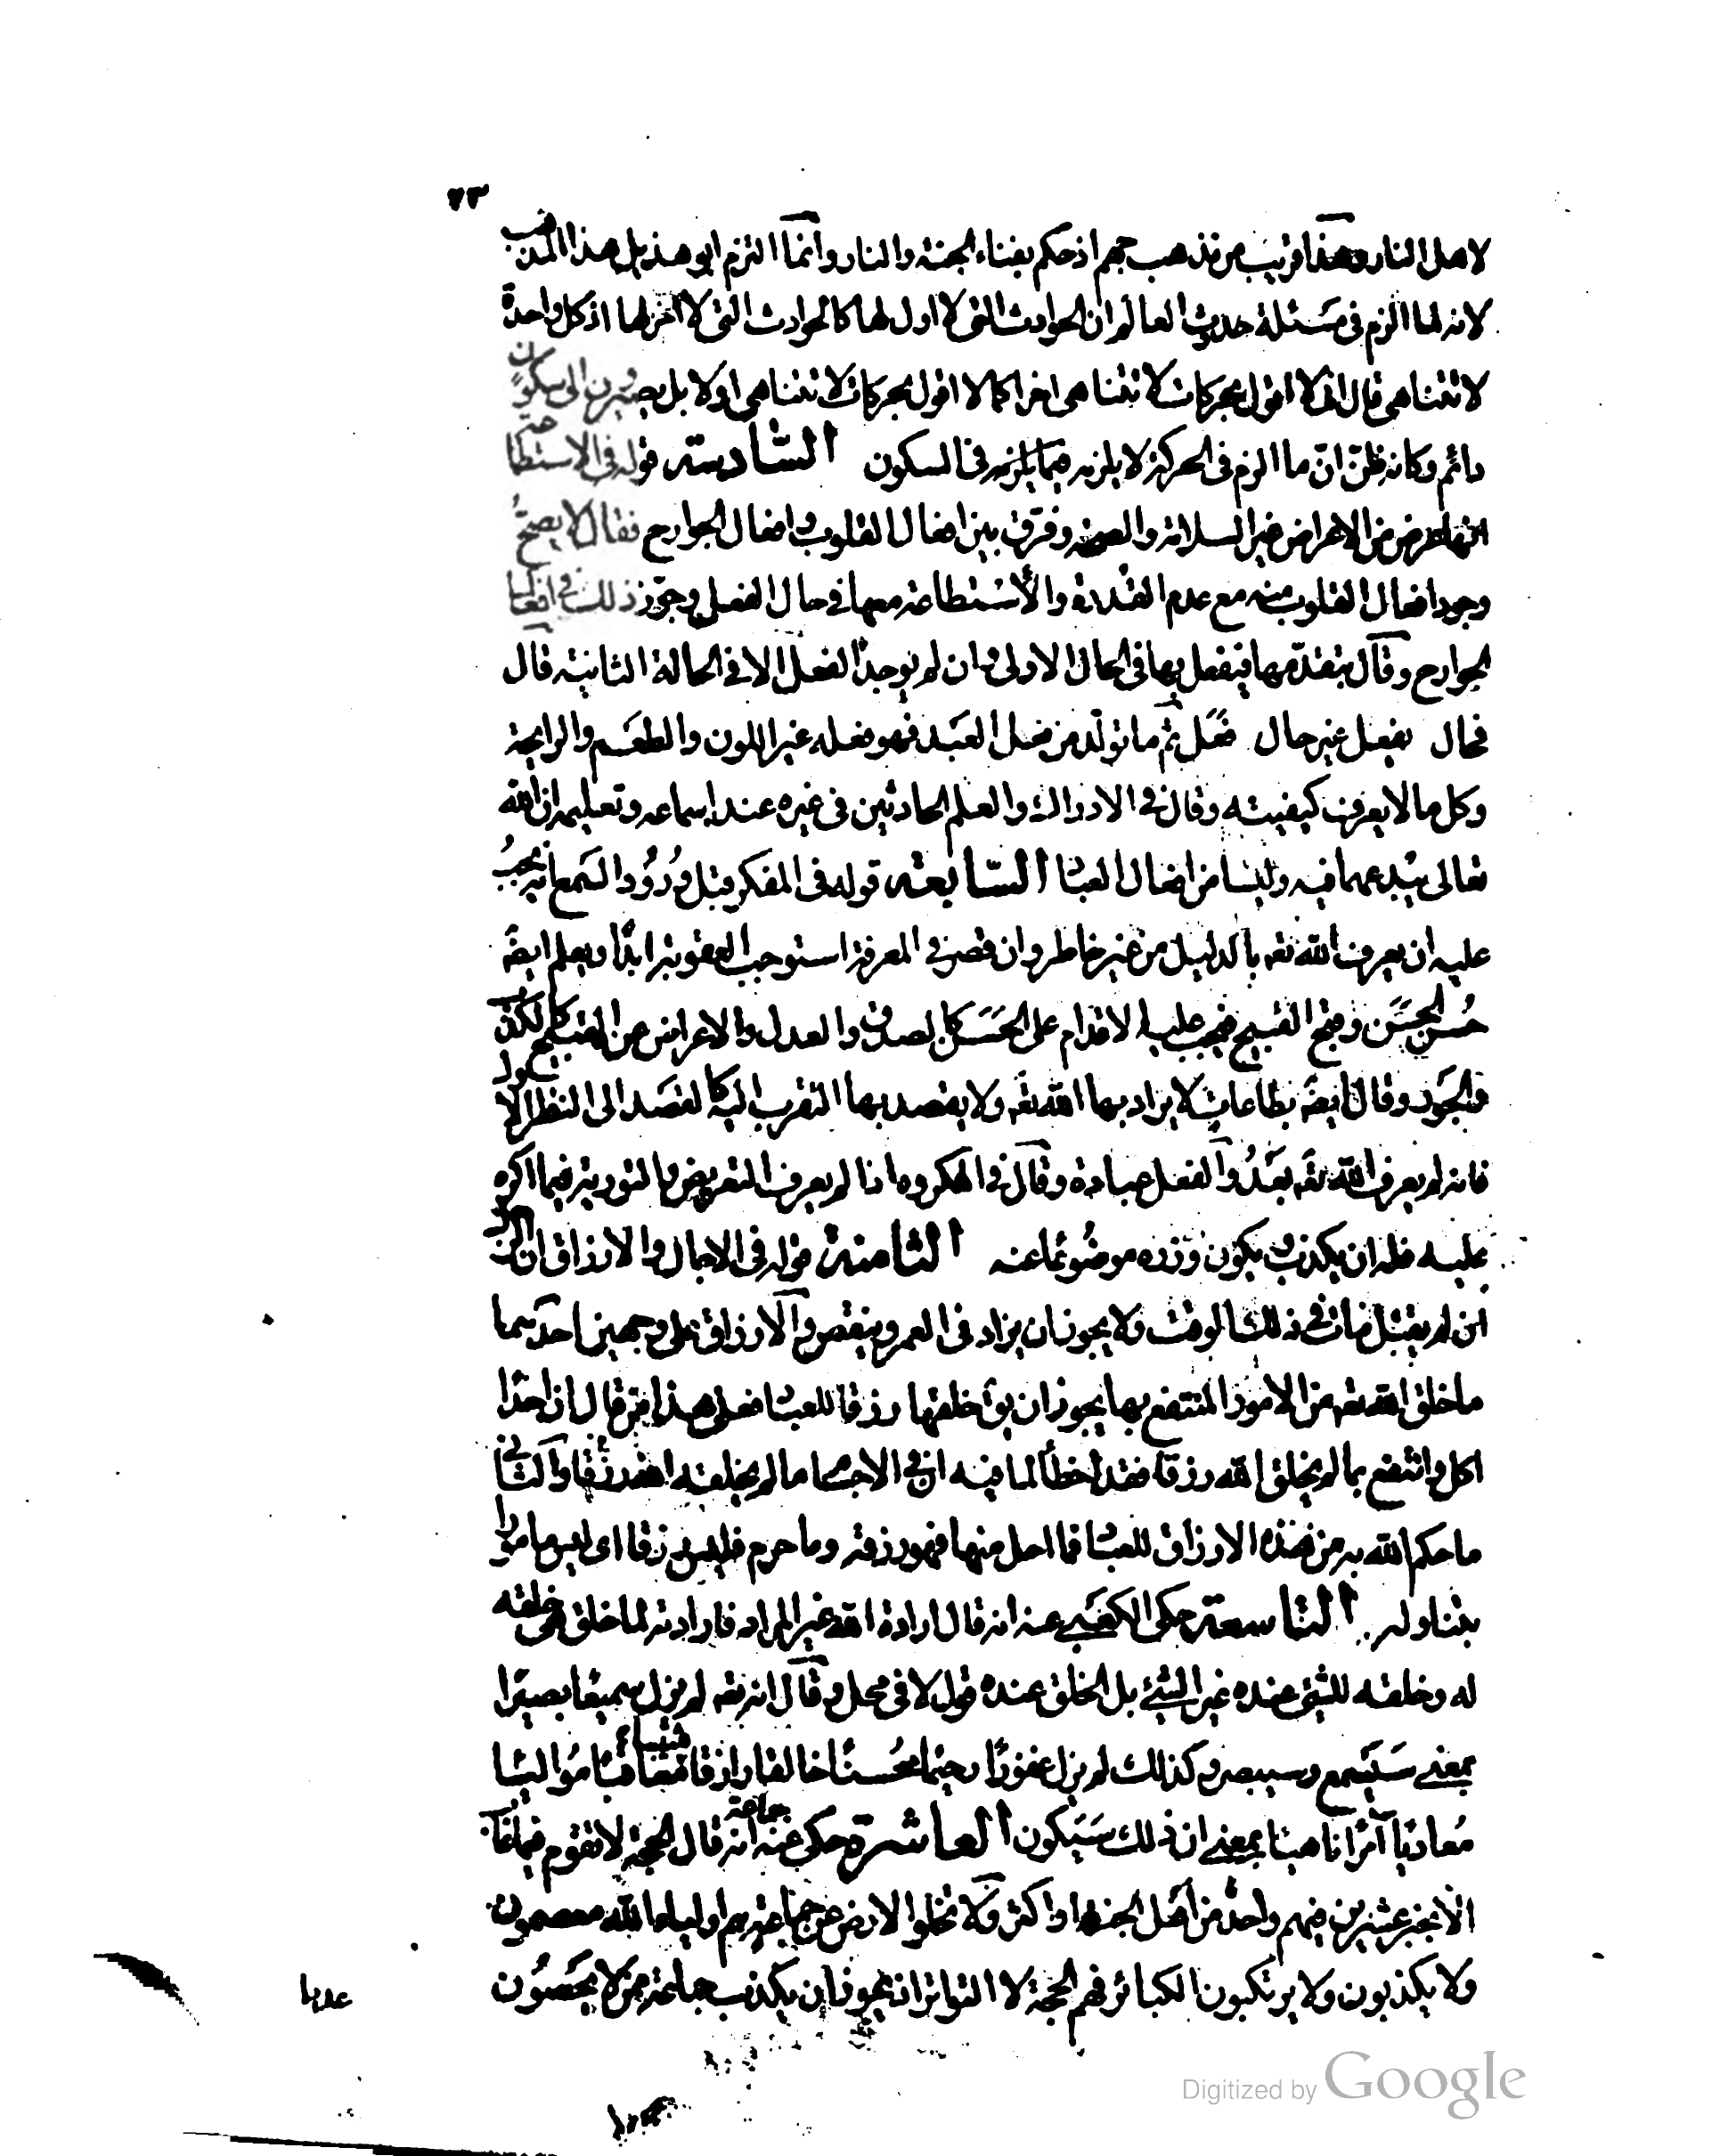 ٢٣
لاهل النار وهذا قريب من مذهب جهم اذ حكم بفناء الجنة والنار وانما التزم ابو هذيل هذا المذهب
لانه لما الزم فى مسئلة حدوث العالم ان الحوادث التى لا اول لها كالحوادث التى لا اخر لها اذ كل واحدة
لا تتناهى قال انى لا اقول بحركات لا تتناهى اخرا كما لا اقول بحركات لا تتناهى اولا بل يصيرون الى سكون
دائم وكانه ظن ان ما الزم فى الحركة لا يلزمه فيما يلزمه فى السكون السادسة قوله فى الاستطاعة
انها عرض من الاعراض غير السلامة والصحة وفرق بين افعال القلوب وافعال الجوارح فقال لا يصح
وجود افعال القلوب منه مع عدم القدرة والاستطاعة معها فى حال الفعل وجوز ذلك فى افعال
الجوارح وقال بتقدمها فيفعل بها فى الحال الاولى وان لم يوجد الفعل الا فى الحالة الثانية قال
فحال يفعل غير حال فعل ثم ما تولد من فعل العبد فهو فعله غير اللون والطعم والرايحة
وكل ما لا يعرف كيفيته وقال فى الادراك والعلم الحادثين فى غيره عند اسماعه وتعليمه ان الله
تعالى يبدعهما فيه وليسا من افعال العباد السابعة قوله فى المفكر قبل ورود السمع انه يجب
عليه ان يعرف الله تعه بالدليل من غير خاطر وان قصر فى المعرفة استوجب العقوبة ابدا ويعلم ايضه
حسن الحسن وقبح القبيح فيجب عليه الاقدام على الحسن كالصدق والعدل والاعراض عن القبيح كالكذب
والجور وقال ايضه بطاعات لا يراد بها الله تعه ولا يقصد بها التقرب اليه كالقصد الى النظر الاول
فانه لم يعرف الله تعه بعد والفعل عبادة وقال فى المكره اذا لم يعرف التعريض والتورية فيما اكره
عليه فله ان يكذب ويكون وزره موضوعا عنه الثامنة قوله فى الاجال والارزاق ان الرجل
ان لم يقتل مات فى ذلك الوقت ولا يجوز ان يزاد فى العمر وينقص والارزاق على وجهين احدهما
ما خلق الله تعه من الامور المنتفع بها يجوز ان يق خلقها رزقا للعباد فعلى هذا من قال ان احدا
اكل وانتفع بما لم يخلق الله رزقا فقد اخطأ لما فيه ان فى الاجسام ما لم يخلقه الله رزقا والثانى
ما حكم الله به من هذه الارزاق للعباد فما احل منها فهو رزقه وما حرم فليس رزقا اى ليس مامورا
بتناوله التاسعة حكى الكعبى عنه انه قال ارادة الله غير المراد فارادته لما خلق هى خلقه
له وخلقه للشئ عنده غير الشئ بل الخلق عنده قول لا فى محل وقال انه تعه لم يزل سميعا بصيرا
بمعنى سيسمع وسيبصر وكذلك لم يزل غفورا رحيما محسنا خالقا رازقا مثيبا معاقبا مواليا
معاديا آمرا ناهيا بمعنى ان ذلك سيكون العاشرة حكى عنه جماعة انه قال الحجة لا تقوم فيما غاب
الا بخبر عشرين فيهم واحد من اهل الجنة او اكثر ولا تخلوا الارض عن جماعة هم اولياء الله معصومون
ولا يكذبون ولا يرتكبون الكبائر فهم الحجة لا التواتر اذ يجوز ان يكذب جماعة ممن لا يحصون
عددا
Digitized by Google